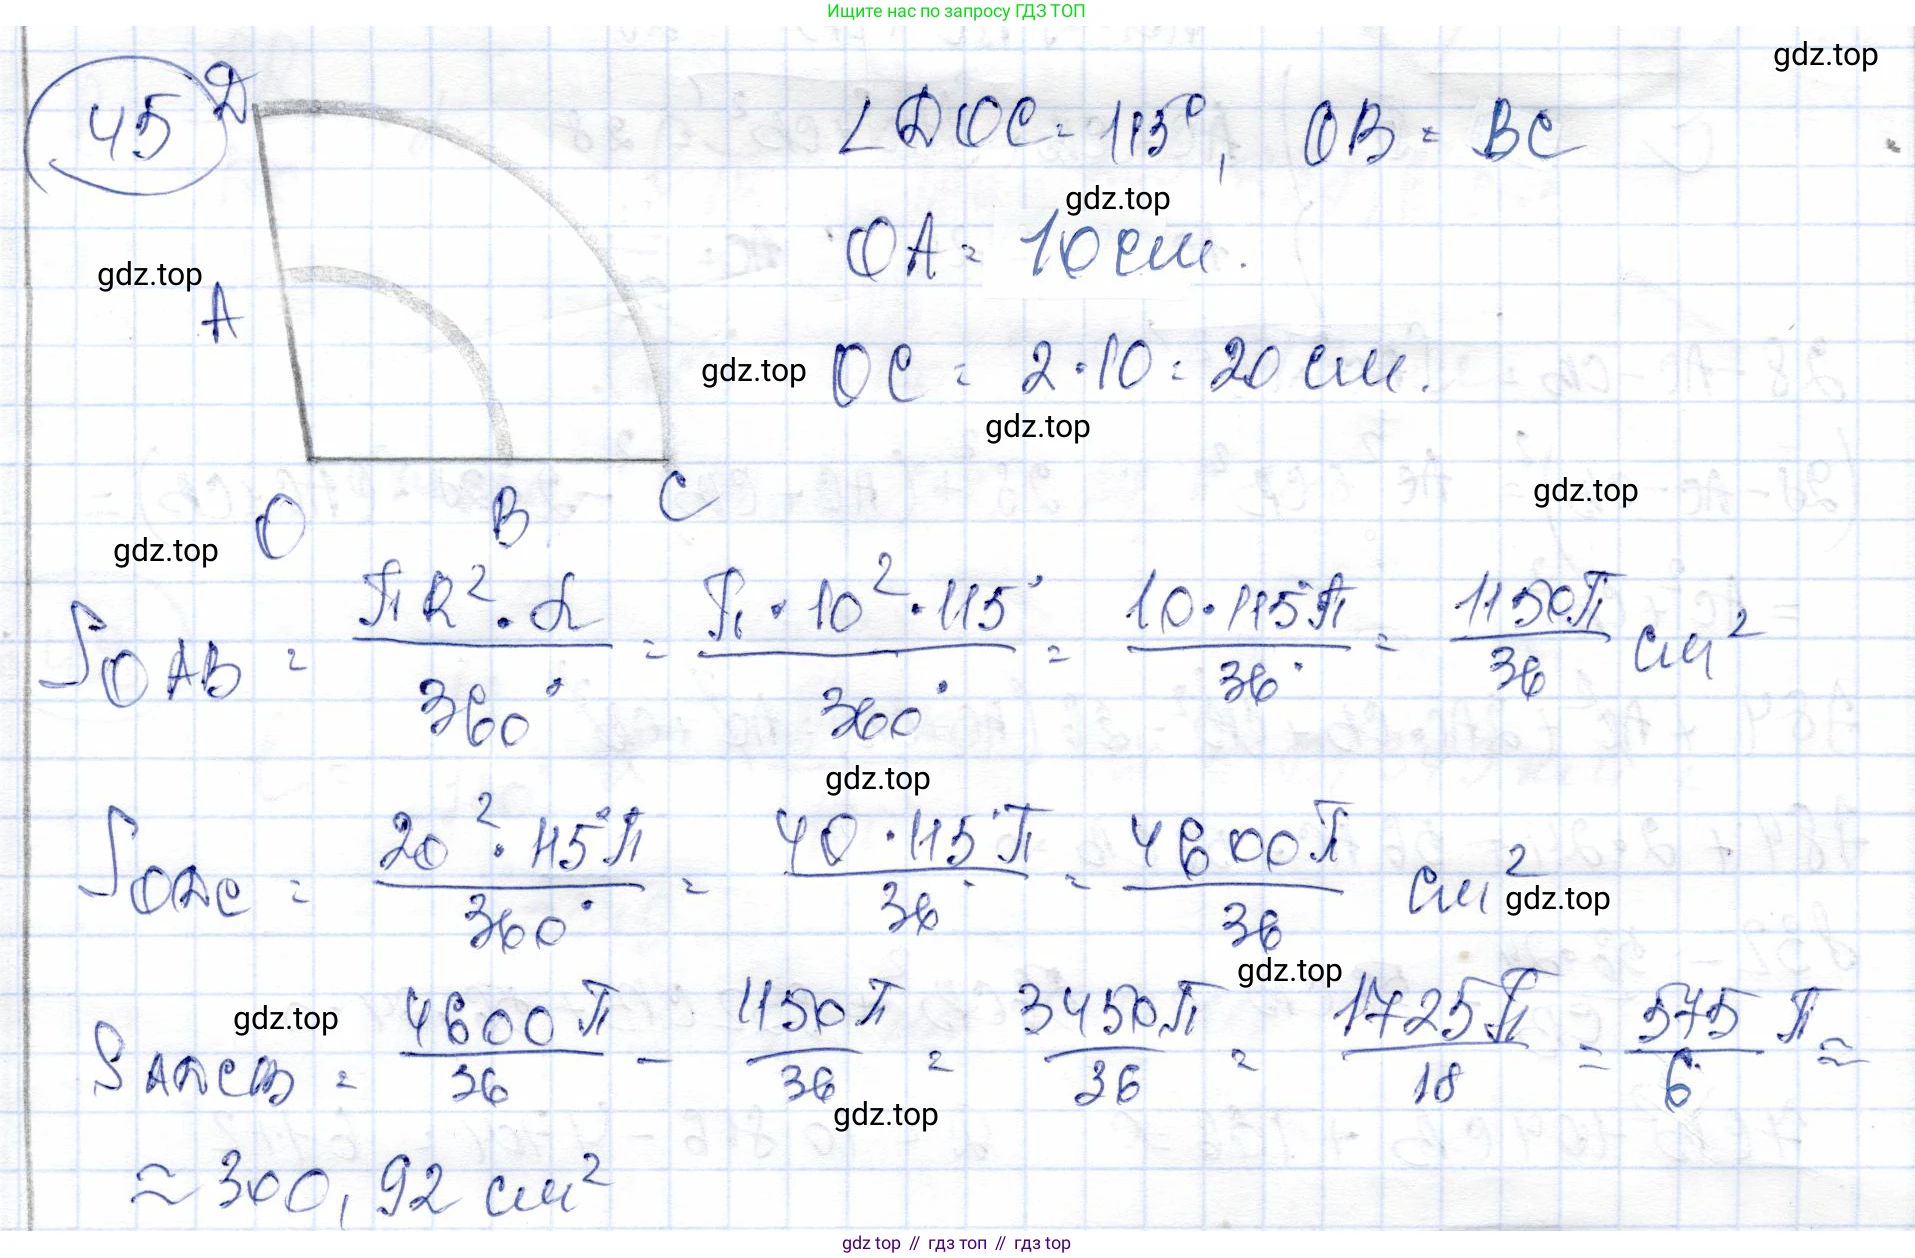 Ищите нас по запросу ГДЗ ТОП
gdz.top
45 D
∠DOC = 115°, OB = BC
gdz.top
OA = 10 см.
gdz.top
A
gdz.top
OC = 2 · 10 = 20 см.
gdz.top
gdz.top
O B C
gdz.top
S OAB = ПR² · α / 360° = П · 10² · 115° / 360° = 10 · 115°П / 36° = 1150П / 36 см²
gdz.top
S ODC = 20² · 115°П / 360° = 40 · 115°П / 36° = 4600П / 36 см²
gdz.top
gdz.top
gdz.top
S ADCB = 4600П / 36 - 1150П / 36 = 3450П / 36 = 1725П / 18 = 575 / 6 П ≈
gdz.top
≈ 300,92 см²
gdz top // гдз топ // гдз top